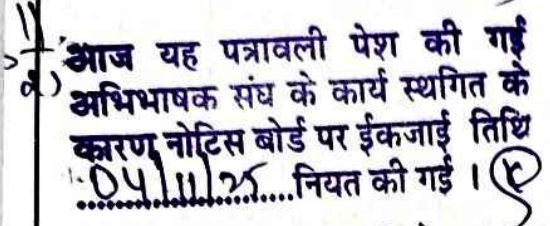 आज यह पत्रावली पेश की गई
अभिभाषक संघ के कार्य स्थगित के
कारण नोटिस बोर्ड पर ईकजाई तिथि
04/11/25 नियत की गई ।